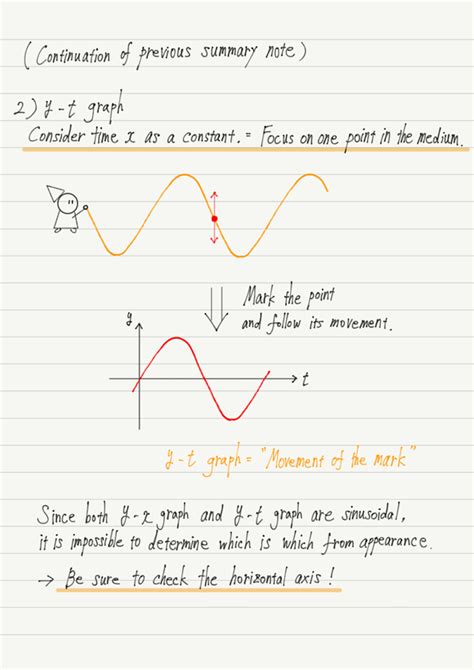 (Continuation of previous summary note)
2) y-t graph
Consider time x as a constant. = Focus on one point in the medium.
Mark the point
and follow its movement.
y
t
y-t graph = "Movement of the mark"
Since both y-x graph and y-t graph are sinusoidal,
it is impossible to determine which is which from appearance.
→ Be sure to check the horizontal axis!